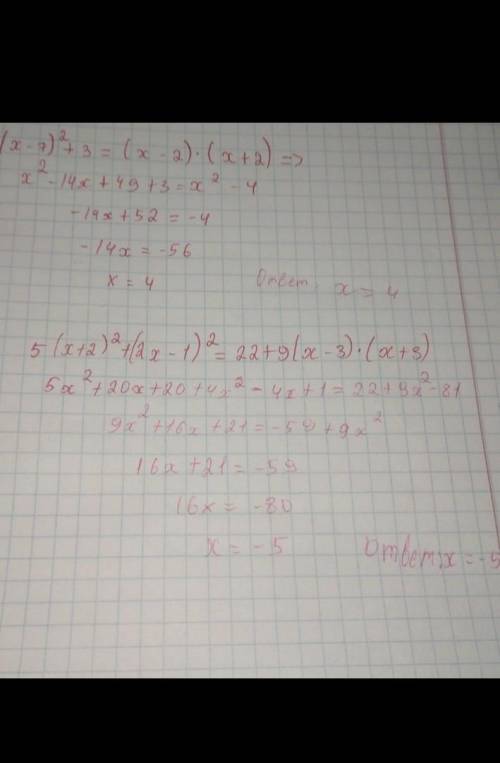 (x-7)²+3=(x-2)·(x+2)=>
x²-14x+49+3=x²-4
-14x+52=-4
-14x=-56
x=4 Ответ: x=4
5(x+2)²+(2x-1)²=22+9(x-3)·(x+3)
5x²+20x+20+4x²-4x+1=22+9x²-81
9x²+16x+21=-59+9x²
16x+21=-59
16x=-80
x=-5 Ответ: x=-5